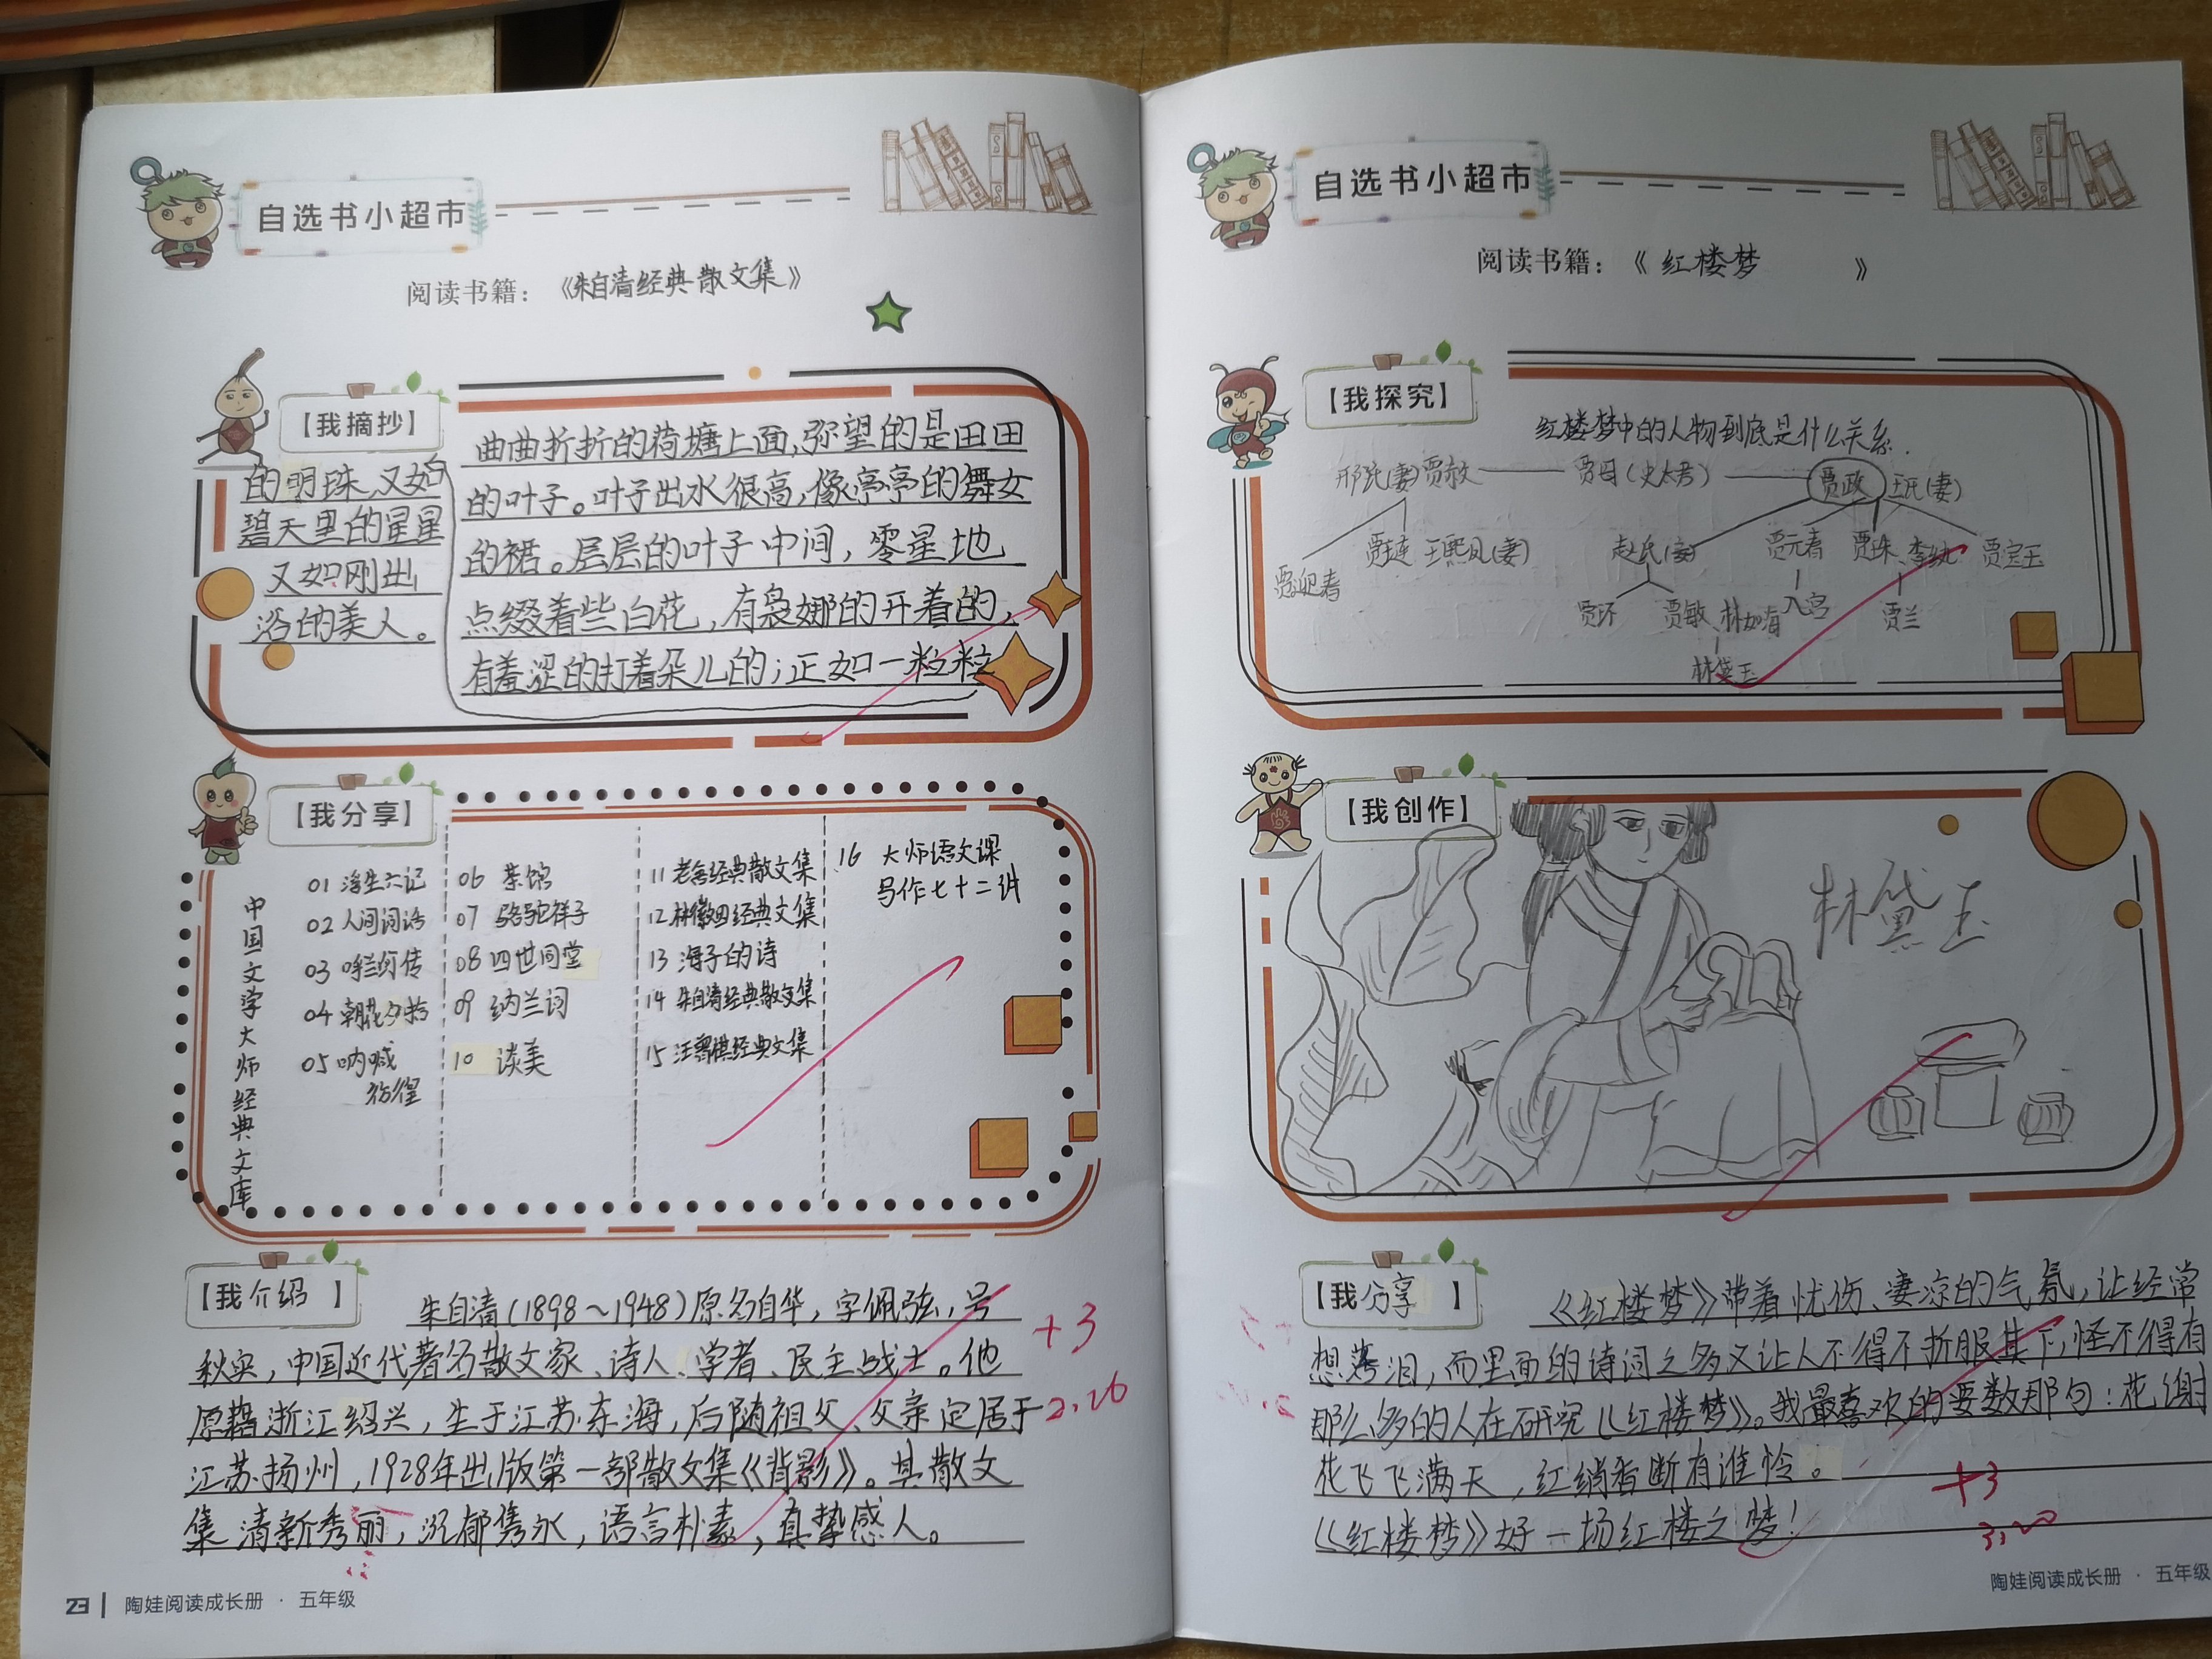 自选书小超市
阅读书籍：《朱自清经典散文集》
【我摘抄】
曲曲折折的荷塘上面，弥望的是田田
的叶子。叶子出水很高，像亭亭的舞女
的裙。层层的叶子中间，零星地
点缀着些白花，有袅娜的开着的，
有羞涩的打着朵儿的；正如一粒粒
的明珠，又如
碧天里的星星
又如刚出
浴的美人。
【我分享】
中国文学大师经典文库
01 浮生六记
02 人间词话
03 呼兰河传
04 朝花夕拾
05 呐喊
彷徨
06 茶馆
07 骆驼祥子
08 四世同堂
09 纳兰词
10 谈美
11 老舍经典散文集
12 林徽因经典文集
13 海子的诗
14 朱自清经典散文集
15 汪曾祺经典文集
16 大师语文课
写作七十二讲
【我介绍】
朱自清（1898～1948）原名自华，字佩弦，号
秋实，中国近代著名散文家、诗人、学者、民主战士。他
原籍浙江绍兴，生于江苏东海，后随祖父、父亲定居于
江苏扬州，1928年出版第一部散文集《背影》。其散文
集清新秀丽，沉郁隽永，语言朴素，真挚感人。
+3
2.26
23 | 陶娃阅读成长册 · 五年级
自选书小超市
阅读书籍：《红楼梦》
【我探究】
红楼梦中的人物到底是什么关系.
邢氏(妻) 贾赦 贾母(史太君) 贾政 王氏(妻)
贾迎春 贾琏 王熙凤(妻) 赵氏(妾) 贾元春 贾珠 李纨 贾宝玉
贾环 贾敏 林如海 入宫 贾兰
林黛玉
【我创作】
林黛玉
【我分享】
《红楼梦》带着忧伤、凄凉的气氛，让经常
想落泪，而里面的诗词之多又让人不得不折服其下，怪不得有
那么多的人在研究《红楼梦》。我最喜欢的要数那句：花谢
花飞飞满天，红绡香断有谁怜。
《红楼梦》好一场红楼之梦！
+3
3.20
陶娃阅读成长册 · 五年级